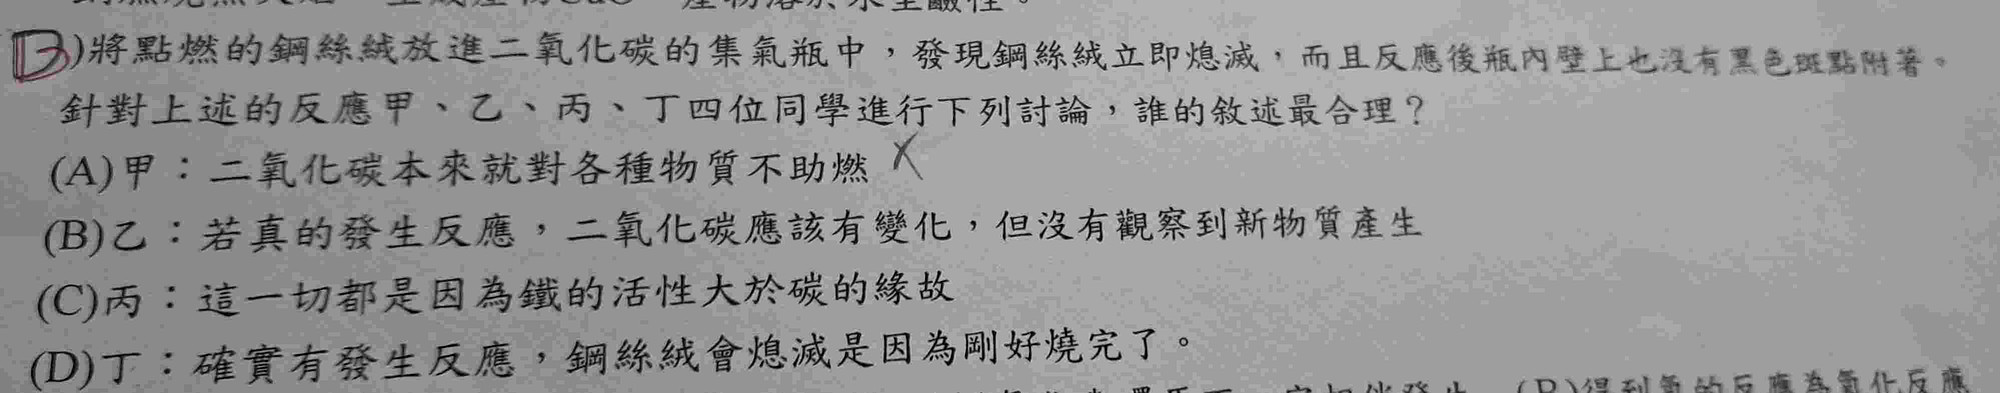 (B)將點燃的鋼絲絨放進二氧化碳的集氣瓶中，發現鋼絲絨立即熄滅，而且反應後瓶內壁上也沒有黑色斑點附著。
針對上述的反應甲、乙、丙、丁四位同學進行下列討論，誰的敘述最合理？
(A)甲：二氧化碳本來就對各種物質不助燃 X
(B)乙：若真的發生反應，二氧化碳應該有變化，但沒有觀察到新物質產生
(C)丙：這一切都是因為鐵的活性大於碳的緣故
(D)丁：確實有發生反應，鋼絲絨會熄滅是因為剛好燒完了。
(B)得到氧的反應為氧化反應